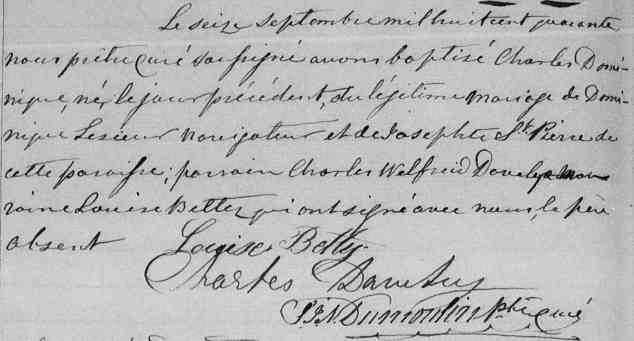 Le seize septembre mil huit cent quarante
nous prêtre curé soussigné avons baptisé Charles Domi-
nique, né, le jour précédent, du légitime mariage de Domi-
nique Lesieur navigateur et de Josephte St. Pierre de
cette paroisse; parrain Charles Welfreid
raine Louise Betley qui ont signé avec nous, le père
absent Louise Betley
Charles
S. N. Dumoulin Ptre curé